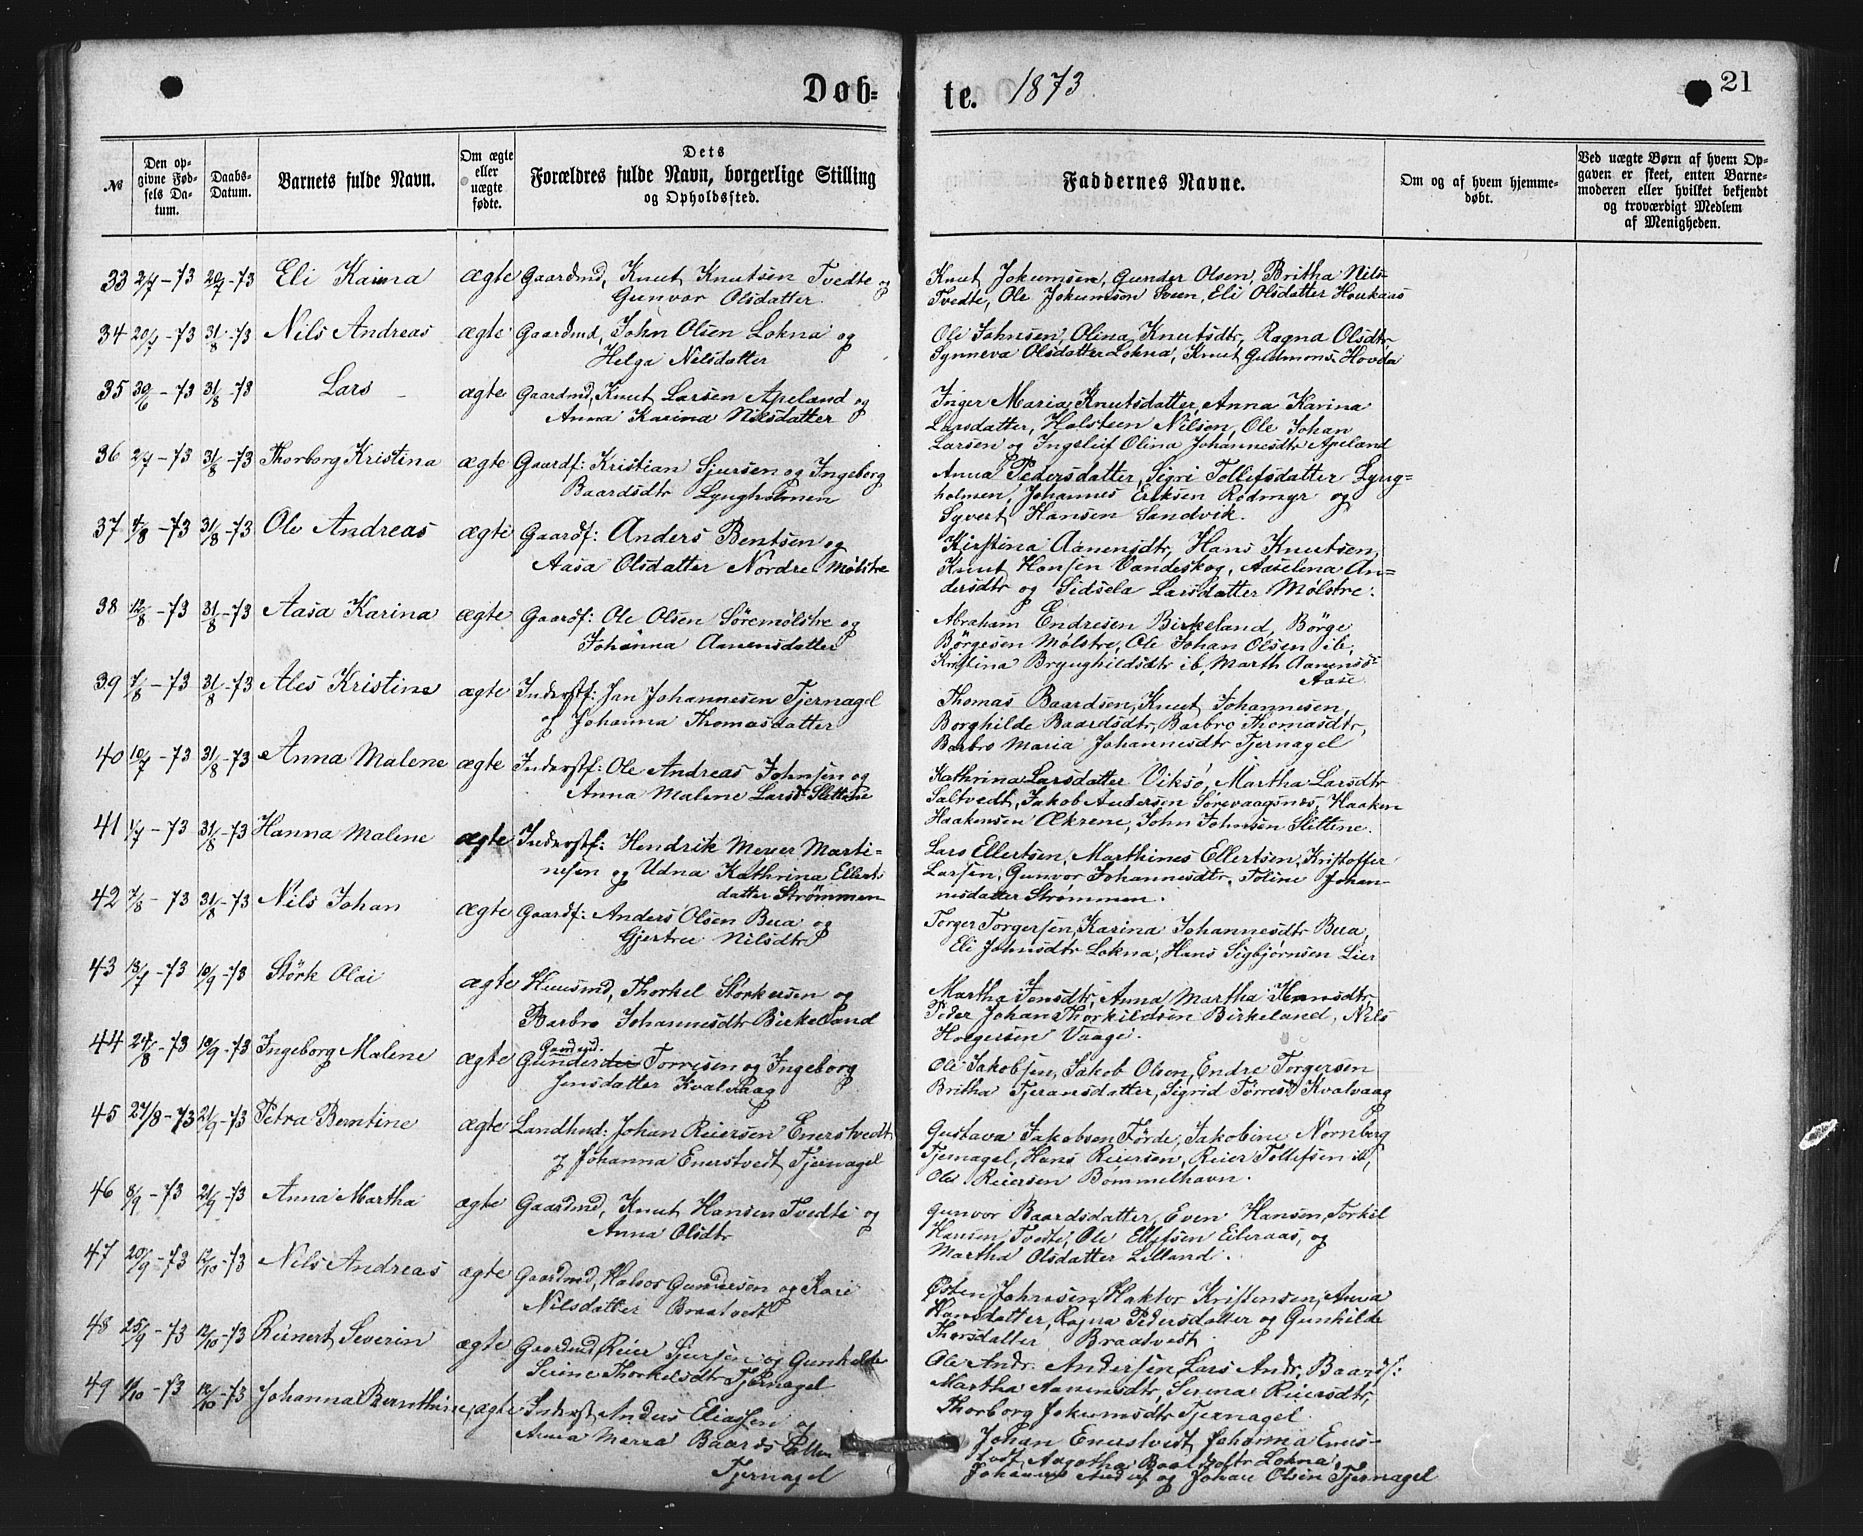 Døb-
te. 1873
21
№
Den op-
givne Fød-
sels Da-
tum.
Daabs-
Datum.
Barnets fulde Navn.
Om ægte
eller
uægte
fødte.
Dets
Forældres fulde Navn, borgerlige Stilling
og Opholdssted.
Faddernes Navne.
Om og af hvem hjemme-
døbt.
Ved uægte Børn af hvem Op-
gaven er skeet, enten Barne-
moderen eller hvilket bekjendt
og troværdigt Medlem
af Menigheden.
33 2/7 - 73 20/7 - 73 Eli Kaina ægte Gaardmd, Knut Knutsen Tvedte og
Gunvor Olsdatter.
Knut Jokumsen, Gunder Olsen, Britha Nils-
Tvedte, Ole Jokumsen Sveen, Eli Olsdatter Houkaas
34 20/7 - 73 31/8 - 73 Nils Andreas ægte Gaardmd, John Olsen Lokna og
Helga Nilsdatter
Ole Johnsen, Olina Knutsdtr, Ragna Olsdtr,
Synneva Olsdatter Lokna, Knut Gudmons. Hovda
35 30/6 - 73 31/8 - 73 Lars ægte Gaardmd, Knut Larsen Apeland og
Anna Karina Nilsdatter
Inger Maria Knutsdatter, Anna Karina
Larsdatter, Holsteen Nilsen, Ole Johan
Larsen og Ingeleif Olina Johannesdtr Apeland
36 2/7 - 73 31/8 - 73 Thorborg Kristina ægte Gaardf: Kristian Sjursen og Ingeborg
Baardsdtr Lyngholmen
Anna Pedersdatter, Sigri Tollefsdatter Lyng=
holmen, Johannes Eriksen Rødmyr og
Syvert Hansen Sandvik.
37 4/8 - 73 31/8 - 73 Ole Andreas ægte Gaardf: Anders Bentsen og
Aasa Olsdatter Nordre Mølstre
Kirstina Aanensdtr, Hans Knutsen,
Knut Hansen Vandeskog, Aaselena An=
dersdtr og Sidsela Larsdatter Mølstre.
38 12/8 - 73 31/8 - 73 Aasa Karina ægte Gaardf: Ole Olsen Søremølstre og
Johanna Aanensdatter
Abraham Endresen Birkeland, Börge
Börgesen Mølstre, Ole Johan Olsen ib,
Kristina Brynghildsdtr ib, Marth Aanensd
Aase
39 7/8 - 73 31/8 - 73 Ales Kristine ægte Inderstf: Jan Johannesen Tjernagel
og Johanna Thomasdatter
Thomas Baardsen, Knut Johannesen,
Borghilde Baardsdtr, Barbro Thomasdtr,
Barbro Maria Johannesdtr Tjernagel
40 10/7 - 73 31/8 - 73 Anna Malene ægte Inderstf: Ole Andreas Johnsen og
Anna Malene Larsd Slettene
Kathrina Larsdatter Viksø, Martha Larsdtr
Saltvedt, Jakob Andersen Sørevaagsnes, Haaken
Haakensen Ækrene, John Johnsen Slettene.
41 1/7 - 73 31/8 - 73 Hanna Malene ægte Inderstf: Hendrik Meyer Marti-
nesen og Udna Kathrina Ellert
datter Strømmen
Lars Ellertsen, Marthines Ellertsen, Kristoffer
Larsen, Gunvor Johannesdtr, Toline Johan-
nesdatter Strømmen.
42 7/8 - 73 31/8 - 73 Nils Johan ægte Gaardf: Anders Olsen Bua og
Gjertru Nilsdtr
Torger Torgersen, Karina Johannesdtr Bua,
Eli Johnsdtr Lokna, Hans Sigbjørnsen Lier
43 18/7 - 73 10/9 - 73 Störk Olai ægte Huusmd, Thorkel Störkersen og
Barbro Johannesdtr Birkeland
Martha Jensdtr, Anna Martha Hansdtr,
Peder Johan Thorkildsen Birkeland, Nils
Holgersen Vaage.
44 24/8 - 73 10/9 - 73 Ingeborg Malene ægte Gaardmd. Gunder Torresen og Ingeborg
Jensdatter Kvalvaag
Ole Jakobsen, Jakob Olsen, Endre Torgersen
Britha Tjeransdatter, Sigrid Tørresd Kvalvaag
45 27/8 - 73 21/9 - 73 Petra Berntine ægte Landhnd: Johan Reiersen Enerstvedt
og Johanna Enerstvedt Tjernagel
Gustava Jakobsen Förde, Jakobine Nornberg
Tjernagel, Hans Reiersen, Reier Tollefsen ib,
Ole Reiersen Bömmelhavn.
46 8/9 - 73 21/9 - 73 Anna Martha ægte Gaardmd, Knut Hansen Tvedte og
Anna Olsdtr
Gunvor Baardsdatter, Even Hansen, Torkel
Hansen Tvedte, Ole Ellefsen Eileraas, og
Martha Olsdatter Lilland.
47 20/9 - 73 12/10 - 73 Nils Andreas ægte Gaardmd, Halvor Gundersen og Kari
Nilsdatter Braatvedt
Østen Johnsen, Haktor Kristensen, Anna
Hansdatter, Ragna Pedersdatter og Gunhilde
Thorsdatter Braatvedt
48 25/9 - 73 12/10 - 73 Reinert Severin ægte Gaardmd, Reier Sjursen og Gunhilde
Serine Thorkelsdtr Tjernagel
Ole Andr. Andersen, Lars Andr. Baards:
Martha Aanensdtr, Serena Reiersdtr,
Thorborg Jokumsdtr Tjernagel.
49 1/10 - 73 12/10 - 73 Johanna Bernthine, ægte Inderst, Anders Eliassen og
Anna Maria Baardsdatter
Tjernagel
Johan Enerstvedt, Johanna Eners-
tvedt, Aagotha Baardsdtr Lokna,
Johannes og Johan Olsen Tjernagel